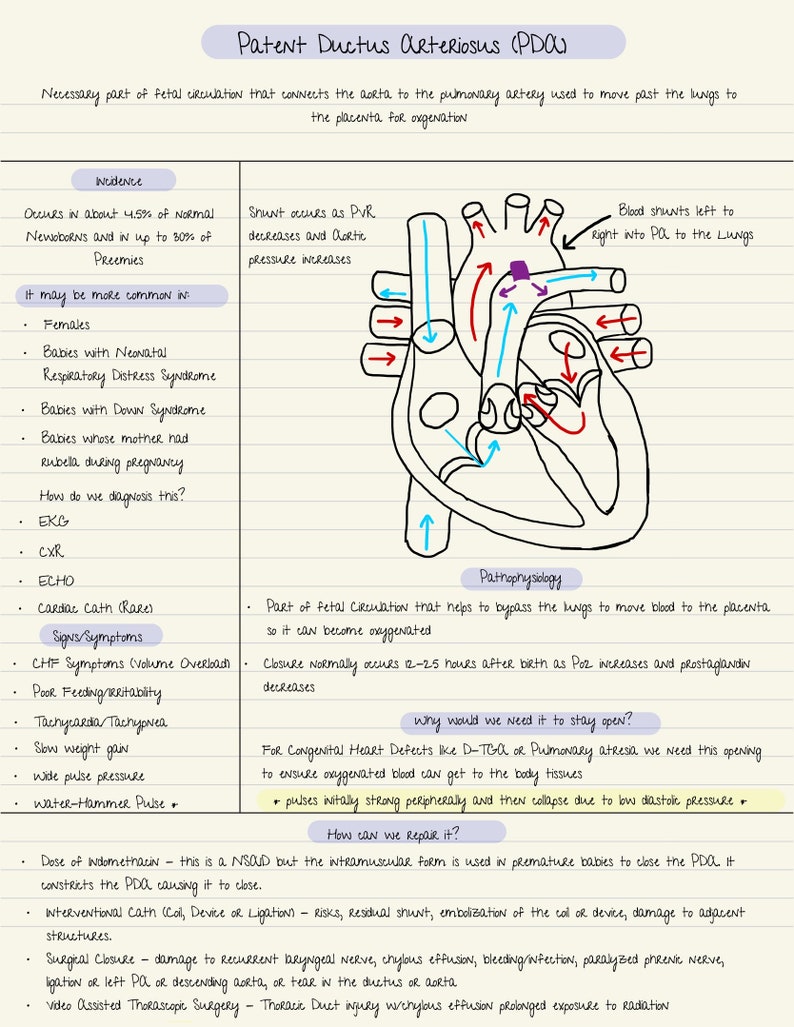 Patent Ductus Arteriosus (PDA)
Necessary part of fetal circulation that connects the aorta to the pulmonary artery used to move past the lungs to
the placenta for oxgenation
Incidence
Occurs in about 4.5% of normal
Newoborns and in up to 30% of
Preemies
It may be more common in:
• Females
• Babies with Neonatal
Respiratory Distress Syndrome
• Babies with Down Syndrome
• Babies whose mother had
rubella during pregnancy
How do we diagnosis this?
• EKG
• CXR
• ECHO
• Cardiac Cath (Rare)
Signs/Symptoms
• CHF Symptoms (Volume Overload)
• Poor Feeding/Irritability
• Tachycardia/Tachypnea
• Slow weight gain
• Wide pulse pressure
• Water-Hammer Pulse *
Shunt occurs as PVR
decreases and Aortic
pressure increases
Blood shunts left to
right into PA to the Lungs
Pathophysiology
• Part of fetal Circulation that helps to bypass the lungs to move blood to the placenta
so it can become oxygenated
• Closure normally occurs 12-25 hours after birth as Po2 increases and prostaglandin
decreases
Why would we need it to stay open?
For Congenital Heart Defects like D-TGA or Pulmonary atresia we need this opening
to ensure oxygenated blood can get to the body tissues
* pulses initally strong peripherally and then collapse due to low diastolic pressure *
How can we repair it?
• Dose of Indomethacin - this is a NSAID but the intramuscular form is used in premature babies to close the PDA. It
constricts the PDA causing it to close.
• Interventional Cath (Coil, Device or Ligation) - risks, residual shunt, embolization of the coil or device, damage to adjacent
structures.
• Surgical Closure - damage to recurrent laryngeal nerve, chylous effusion, bleeding/infection, paralyzed phrenic nerve,
ligation or left PA or descending aorta, or tear in the ductus or aorta
• Video Assisted Thorascopic Surgery - Thoracic Duct injury w/chylous effusion prolonged exposure to radiation